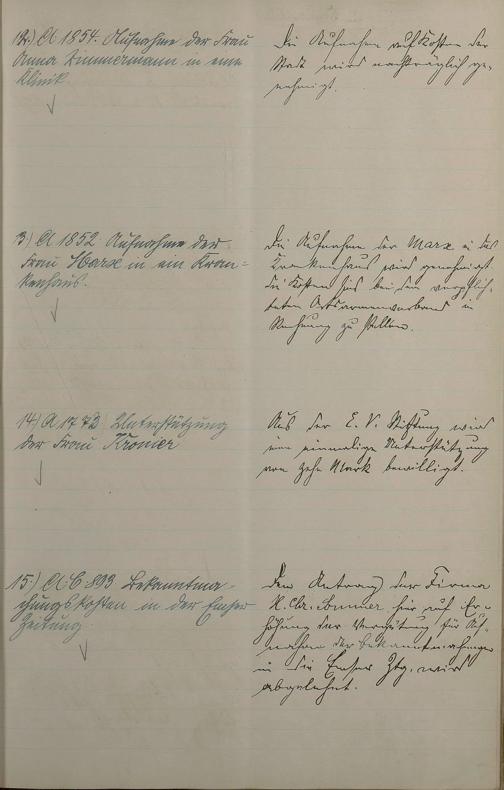 12.) A 1854. Aufnahme der Frau
Anna Zimmermann in eine
Klinik
Die Aufnahme auf Kosten der
Stadt wird nachträglich ge-
nehmigt.
13) A 1852. Aufnahme der
Frau Marx in ein Kran-
kenhaus.
Die Aufnahme der Marx in das
Krankenhaus wird genehmigt.
Die Kosten sind bei dem verpflich-
teten Ortsarmenverband in
Rechnung zu stellen.
14) A 1772 Unterstützung
der Frau Kronier
Aus der E. V. Stiftung wird
eine einmalige Unterstützung
von zehn Mark bewilligt.
15.) A.C. 893 Bekanntma-
chungskosten in der Emser
Zeitung.
Dem Antrag der Firma
H. Chr. Sommer hier auf Er-
höhung der Vergütung für Auf-
nahme der Bekanntmachungen
in die Emser Ztg. wird
abgelehnt.